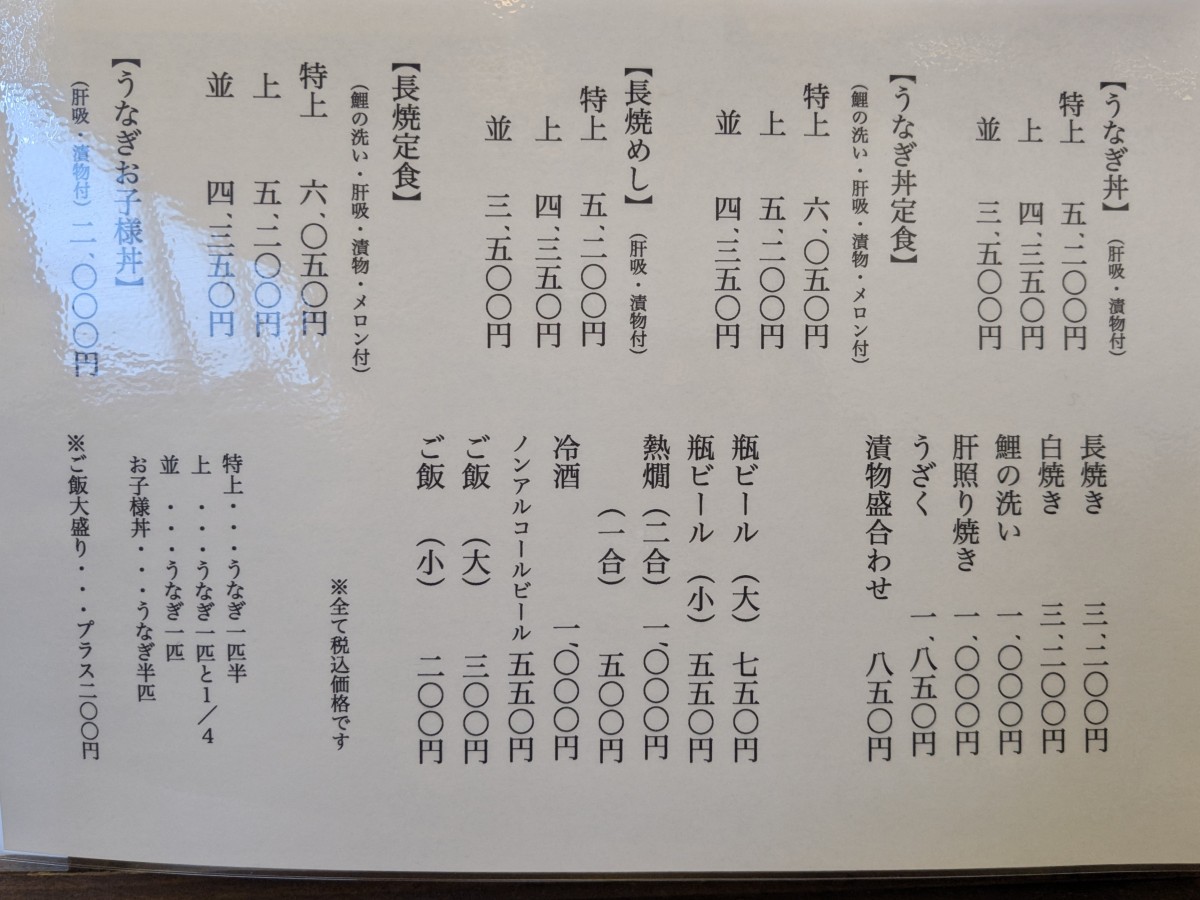 【うなぎ丼】（肝吸・漬物付）
特上 五、二〇〇円
上 四、三五〇円
並 三、五〇〇円
【うなぎ丼定食】
（鯉の洗い・肝吸・漬物・メロン付）
特上 六、〇五〇円
上 五、二〇〇円
並 四、三五〇円
【長焼めし】（肝吸・漬物付）
特上 五、二〇〇円
上 四、三五〇円
並 三、五〇〇円
【長焼定食】
（鯉の洗い・肝吸・漬物・メロン付）
特上 六、〇五〇円
上 五、二〇〇円
並 四、三五〇円
【うなぎお子様丼】
（肝吸・漬物付）二、〇〇〇円
長焼き 三、二〇〇円
白焼き 三、二〇〇円
鯉の洗い 一、〇〇〇円
肝照り焼き 一、〇〇〇円
うざく 一、八五〇円
漬物盛合わせ 八五〇円
瓶ビール（大） 七五〇円
瓶ビール（小） 五五〇円
熱燗（二合） 一、〇〇〇円
（一合） 五〇〇円
冷酒 一、〇〇〇円
ノンアルコールビール 五五〇円
ご飯（大） 三〇〇円
ご飯（小） 二〇〇円
※全て税込価格です
特上・・・うなぎ一匹半
上・・・うなぎ一匹と1／4
並・・・うなぎ一匹
お子様丼・・・うなぎ半匹
※ご飯大盛り・・・プラス二〇〇円